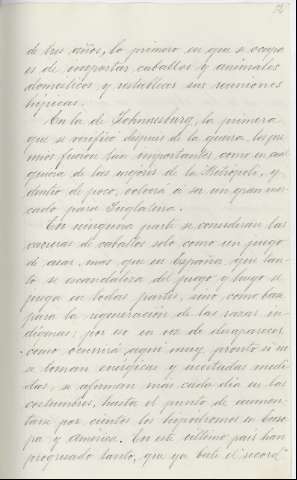 de tres años, lo primero en que se ocupa
es de importar caballos y animales
domésticos y establecer sus reuniones
hípicas.
En la de Johnnesburg, la primera
que se verificó despues de la guerra, los pre-
mios fueron tan importantes como en
los mejores de la Metrópoli, y
dentro de poco, volverá a ser un gran mer-
cado para Inglaterra.
En ninguna parte se consideran las
carreras de caballos solo como un juego
de azar, mas que en España, que tan-
to se escandaliza del juego y luego se
juega en todas partes, sino como base
para la regeneración de las razas in-
dígenas; por eso en vez de desaparecer,
como ocurrirá aquí muy pronto si no
se toman enérgicas y acertadas medi-
das, se afirman más cada día en las
costumbres, hasta el punto de aumen-
tarse por cientos los hipódromos en Euro-
pa y América. En este último país han
progresado tanto, que ya bate el "record"